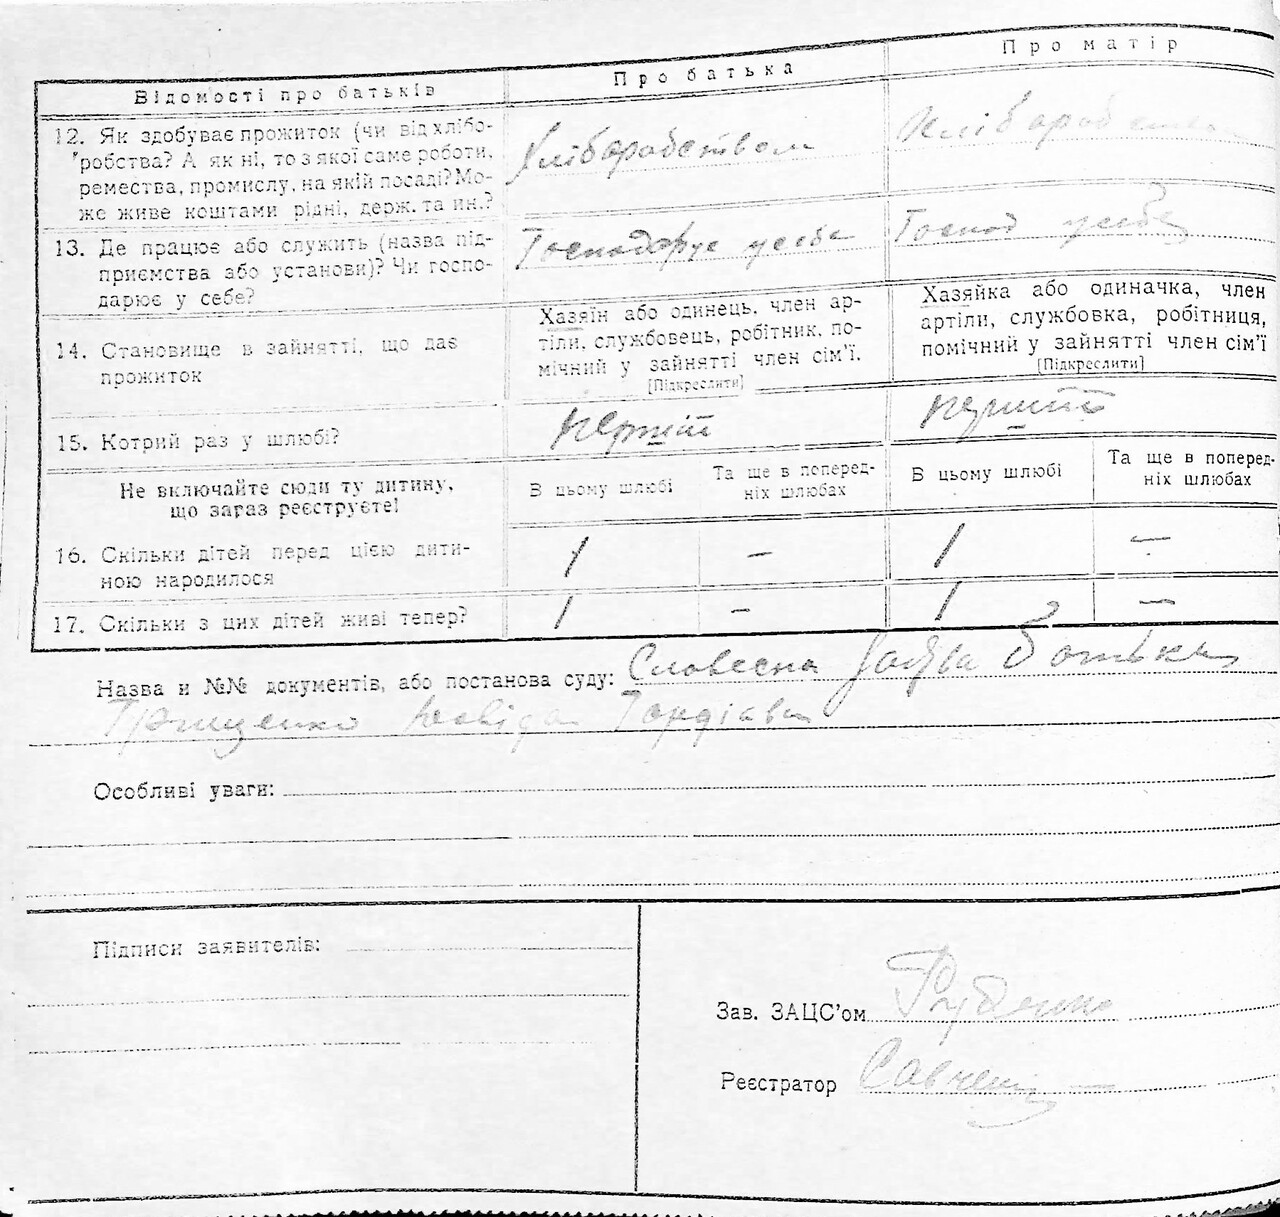 Відомості про батьків
Про батька
Про матір
12. Як здобуває прожиток (чи від хлібо-
робства? А як ні, то з якої саме роботи,
ремества, промислу, на якій посаді? Мо-
же живе коштами рідні, держ. та ин.?
Хліборобством
Хліборобством
13. Де працює або служить (назва під-
приємства або установи)? Чи госпо-
дарює у себе?
Господарює у себе
Господ у себе
14. Становище в зайнятті, що дає
прожиток
Хазяїн або одинець, член ар-
тіли, службовець, робітник, по-
мічний у зайнятті член сім'ї.
[Підкреслити]
Хазяйка або одиначка, член
артіли, службовка, робітниця,
помічний у зайнятті член сім'ї
[Підкреслити]
15. Котрий раз у шлюбі?
перший
перший
Не включайте сюди ту дитину,
що зараз реєструєте!
В цьому шлюбі
Та ще в поперед-
ніх шлюбах
В цьому шлюбі
Та ще в поперед-
ніх шлюбах
16. Скільки дітей перед цією дити-
ною народилося
1 — 1 —
17. Скільки з цих дітей живі тепер?
1 — 1 —
Назва и №№ документів, або постанова суду: Словесна заява батька
Грищенко Гордієва
Особливі уваги:
Підписи заявителів:
Зав. ЗАЦС'ом Руденко
Реєстратор Савченко